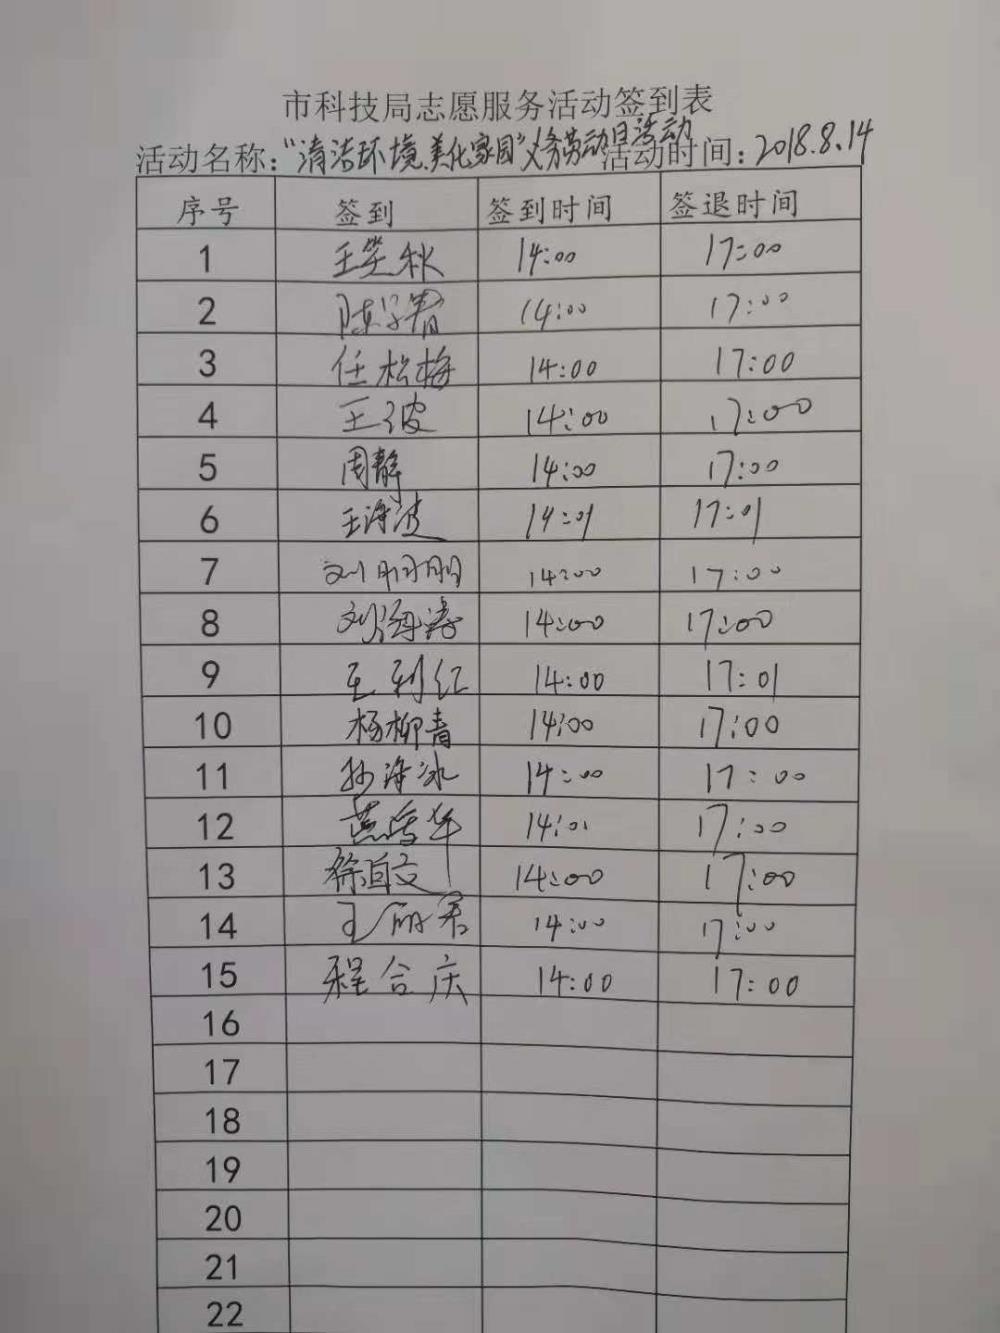 市科技局志愿服务活动签到表
活动名称："清洁环境,美化家园"义务劳动日活动 活动时间：2018.8.14
序号 签到 签到时间 签退时间
1 王笑秋 14:00 17:00
2 陈学青 14:00 17:00
3 任松梅 14:00 17:00
4 王波 14:00 17:00
5 周静 14:00 17:00
6 王海波 14:01 17:01
7 刘明明 14:00 17:00
8 刘海涛 14:00 17:00
9 王利红 14:00 17:01
10 杨柳青 14:00 17:00
11 孙海冰 14:00 17:00
12 14:01 17:00
13 徐自文 14:00 17:00
14 王丽君 14:00 17:00
15 程合庆 14:00 17:00
16
17
18
19
20
21
22